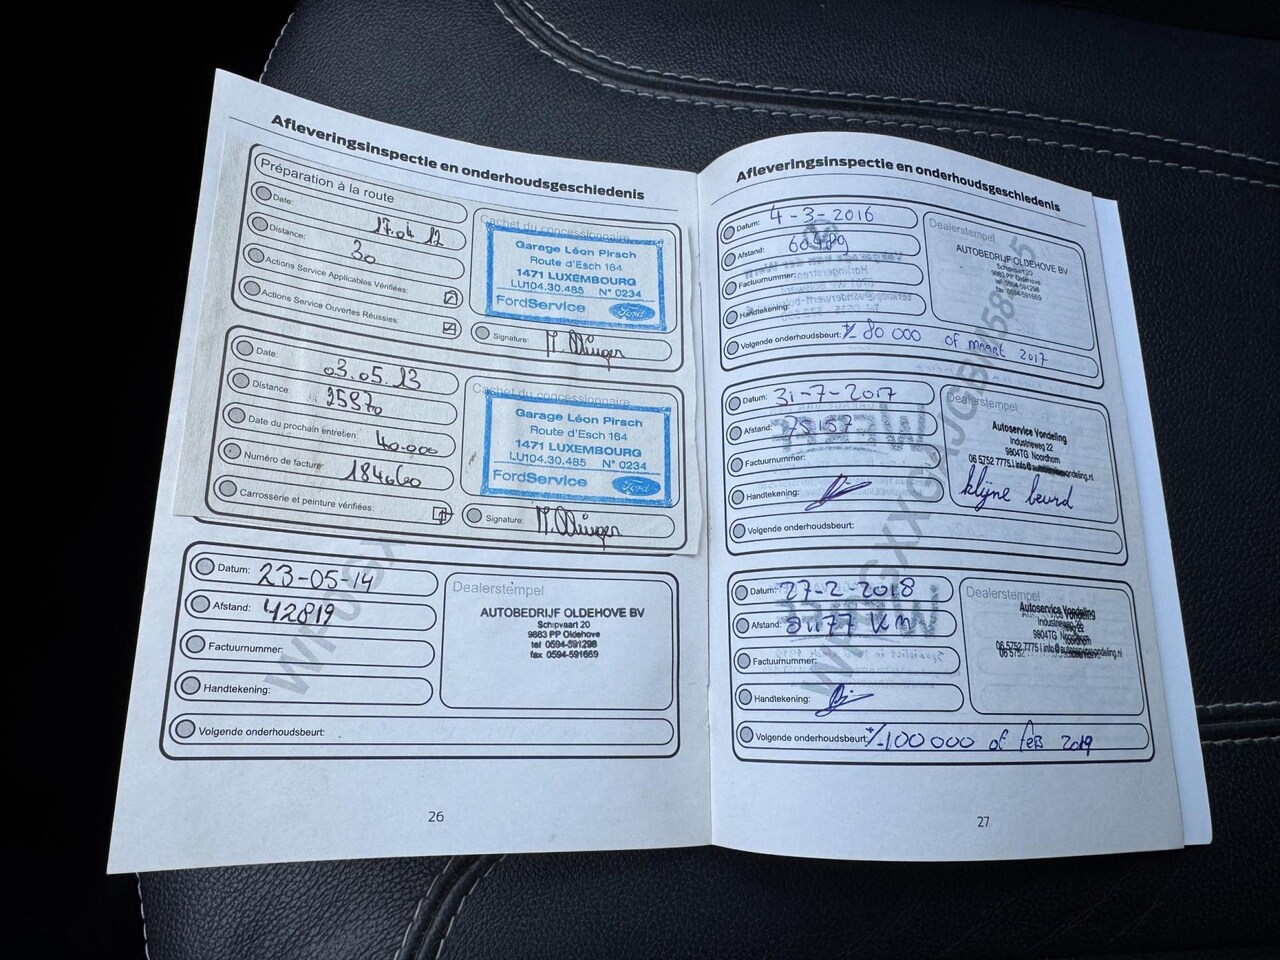 Afleveringsinspectie en onderhoudsgeschiedenis
Préparation à la route
Date: 17.04.12
Distance: 30
Actions Service Applicables Vérifiées:
Actions Service Ouvertes Réussies:
Cachet du concessionnaire
Garage Léon Pirsch
Route d'Esch 164
1471 LUXEMBOURG
LU104.30.485 N° 0234
FordService Ford
Signature:
Date: 03.05.13
Distance: 25870
Date du prochain entretien: 40.000
Numéro de facture: 184660
Carrosserie et peinture vérifiées:
Cachet du concessionnaire
Garage Léon Pirsch
Route d'Esch 164
1471 LUXEMBOURG
LU104.30.485 N° 0234
FordService Ford
Signature:
Datum: 23-05-14
Afstand: 42819
Factuurnummer:
Handtekening:
Volgende onderhoudsbeurt:
Dealerstempel
AUTOBEDRIJF OLDEHOVE BV
Schipvaart 20
9883 PP Oldehove
tel 0594-591298
fax 0594-591669
26
Afleveringsinspectie en onderhoudsgeschiedenis
Datum: 4-3-2016
Afstand: 60489
Factuurnummer:
Handtekening:
Volgende onderhoudsbeurt: +/- 80 000 of maart 2017
Dealerstempel
AUTOBEDRIJF OLDEHOVE BV
Schipvaart 20
9883 PP Oldehove
tel 0594-591298
fax 0594-591669
Datum: 31-7-2017
Afstand: 75157
Factuurnummer:
Handtekening:
Volgende onderhoudsbeurt:
Dealerstempel
Autoservice Vondeling
Industrieweg 22
9804TG Noordhorn
06 5752 7775 | info@autoservicevondeling.nl
klijne beurd
Datum: 27-2-2018
Afstand: 81177 km
Factuurnummer:
Handtekening:
Volgende onderhoudsbeurt: +/- 100 000 of feb 2019
Dealerstempel
Autoservice Vondeling
Industrieweg 22
9804TG Noordhorn
06 5752 7775 | info@autoservicevondeling.nl
27